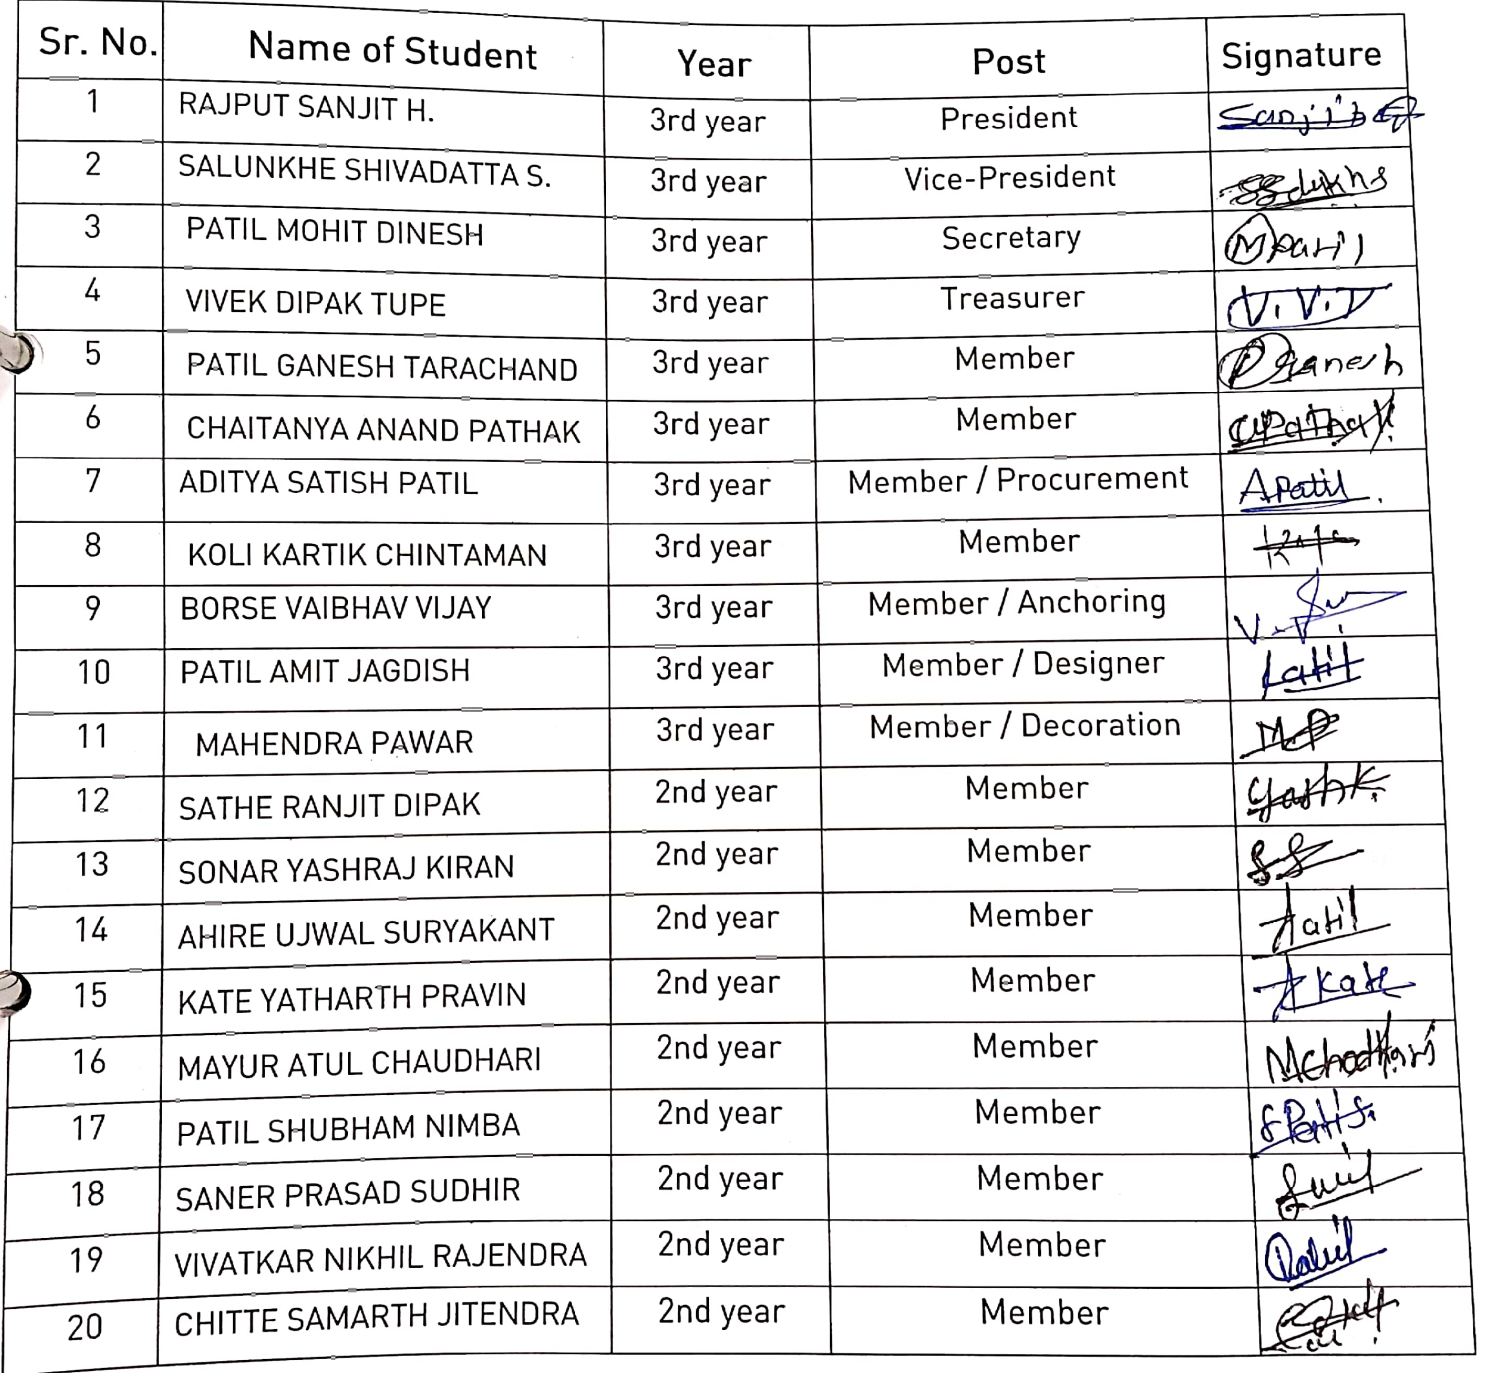 Sr. No. Name of Student Year Post Signature
1 RAJPUT SANJIT H. 3rd year President
2 SALUNKHE SHIVADATTA S. 3rd year Vice-President
3 PATIL MOHIT DINESH 3rd year Secretary Mpatil
4 VIVEK DIPAK TUPE 3rd year Treasurer V.V.T
5 PATIL GANESH TARACHAND 3rd year Member PGanesh
6 CHAITANYA ANAND PATHAK 3rd year Member CPathak
7 ADITYA SATISH PATIL 3rd year Member / Procurement APatil.
8 KOLI KARTIK CHINTAMAN 3rd year Member
9 BORSE VAIBHAV VIJAY 3rd year Member / Anchoring
10 PATIL AMIT JAGDISH 3rd year Member / Designer
11 MAHENDRA PAWAR 3rd year Member / Decoration M.P
12 SATHE RANJIT DIPAK 2nd year Member YashK.
13 SONAR YASHRAJ KIRAN 2nd year Member
14 AHIRE UJWAL SURYAKANT 2nd year Member
15 KATE YATHARTH PRAVIN 2nd year Member
16 MAYUR ATUL CHAUDHARI 2nd year Member
17 PATIL SHUBHAM NIMBA 2nd year Member
18 SANER PRASAD SUDHIR 2nd year Member
19 VIVATKAR NIKHIL RAJENDRA 2nd year Member
20 CHITTE SAMARTH JITENDRA 2nd year Member